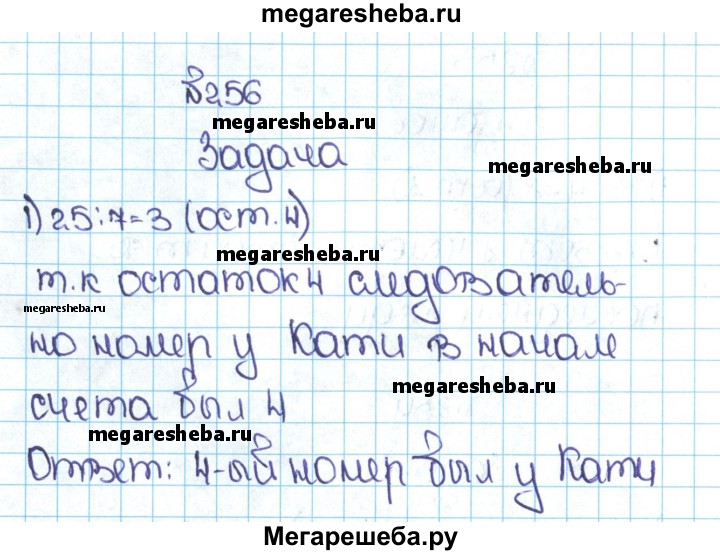 megaresheba.ru
№256
megaresheba.ru
Задача
megaresheba.ru
1) 25:7=3 (ост.4)
megaresheba.ru
т.к остаток 4 следователь-
megaresheba.ru
но номер у Кати в начале
megaresheba.ru
счета был 4
megaresheba.ru
Ответ: 4-ый номер был у Кати
Мегарешеба.ру